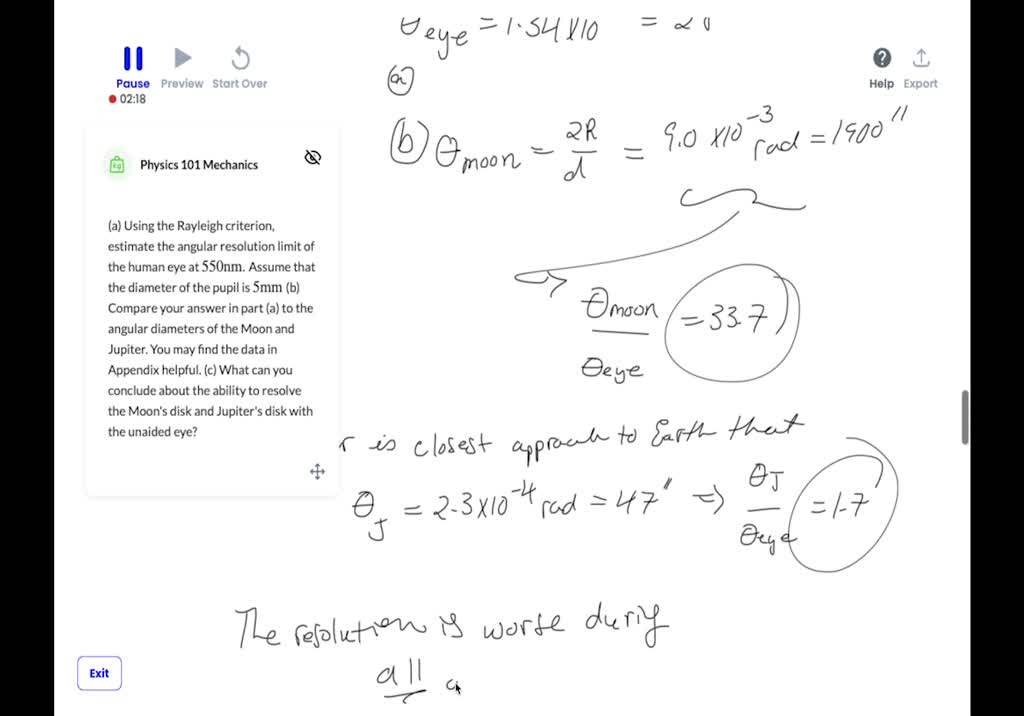 θeye = 1.34 x 10 = 28
Pause Preview Start Over
02:18
Help Export
(a)
(b) θmoon = 2R/d = 9.0 x10^-3 rad = 1900"
Physics 101 Mechanics
(a) Using the Rayleigh criterion,
estimate the angular resolution limit of
the human eye at 550nm. Assume that
the diameter of the pupil is 5mm (b)
Compare your answer in part (a) to the
angular diameters of the Moon and
Jupiter. You may find the data in
Appendix helpful. (c) What can you
conclude about the ability to resolve
the Moon's disk and Jupiter's disk with
the unaided eye?
θmoon/θeye = 33.7
r is closest approach to Earth that
θJ = 2.3x10^-4 rad = 47" ⇒ θJ/θeye = 1.7
The resolution is worse during
all
Exit